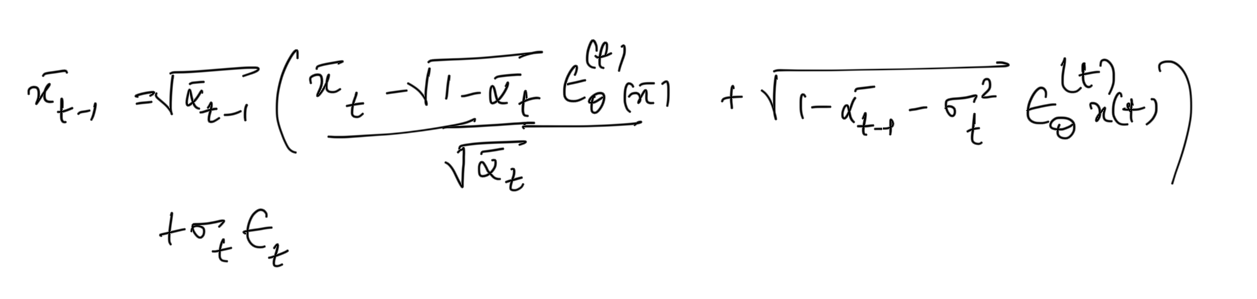 x̄_{t-1} = √(ᾱ_{t-1}) ( (x̄_t - √(1 - ᾱ_t) ϵ_θ^{(t)}(x̄)) / √(ᾱ_t) + √(1 - ᾱ_{t-1} - σ_t^2) ϵ_θ^{(t)} x(t) )
+ σ_t ϵ_t